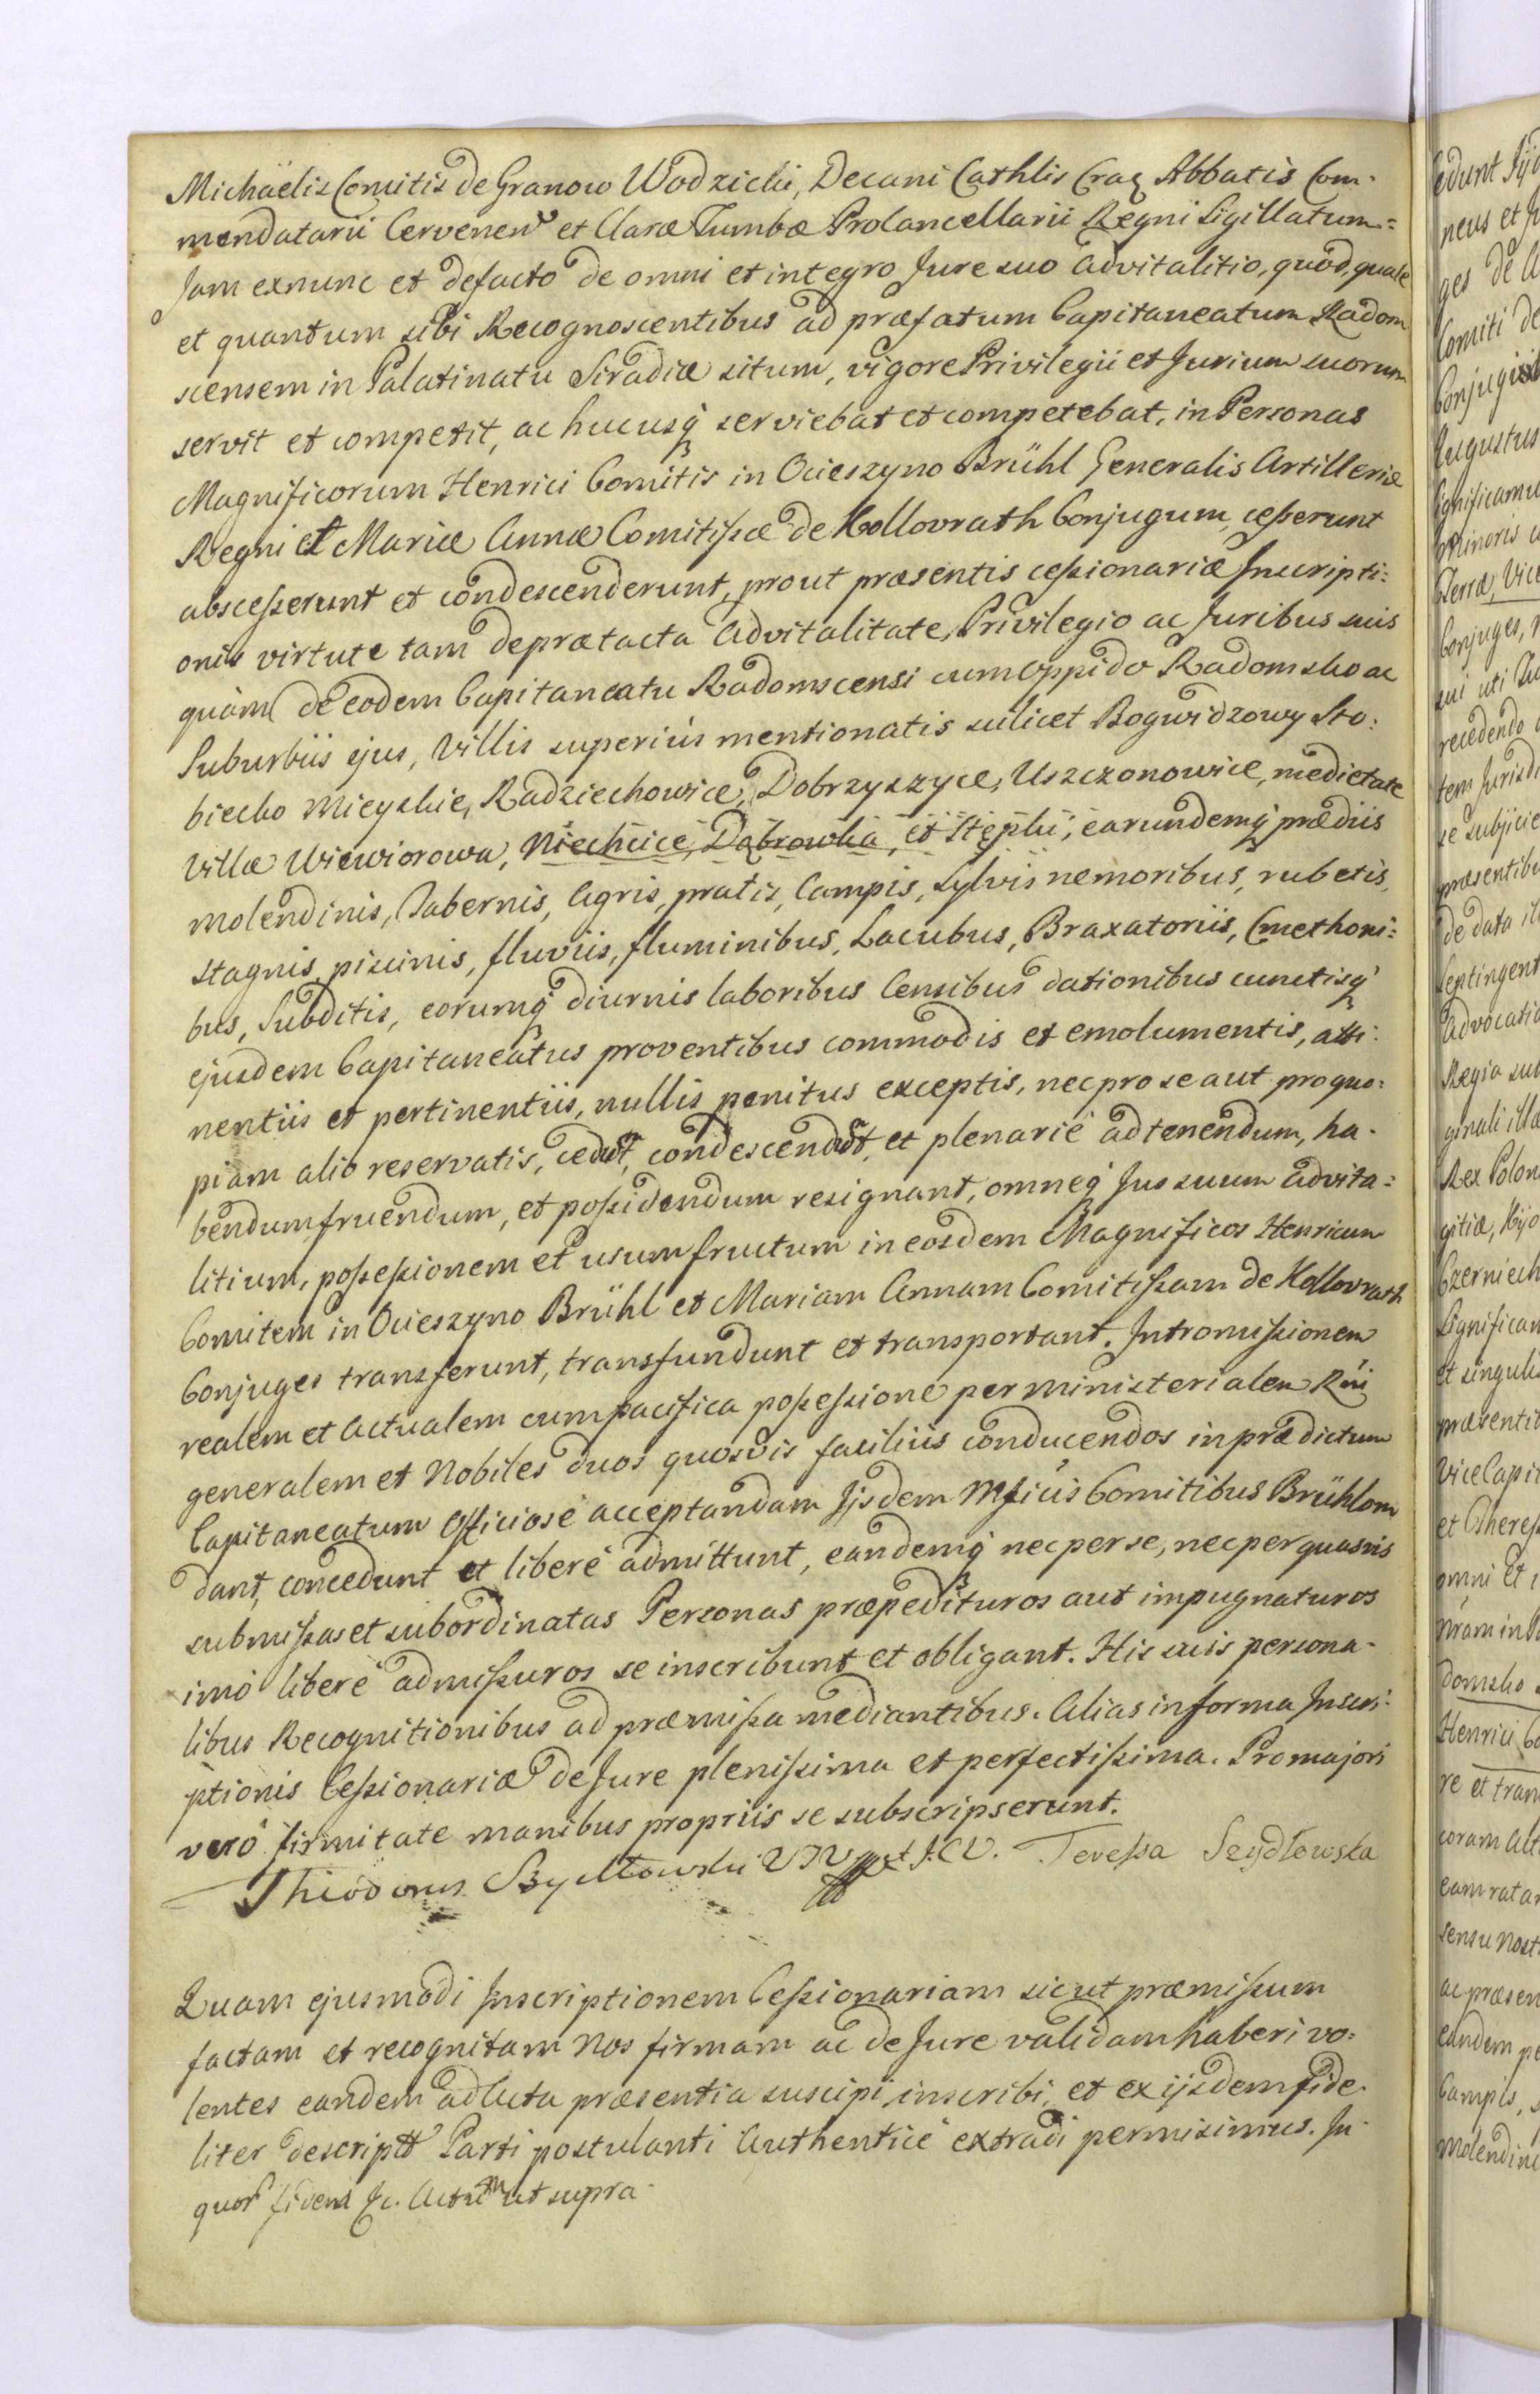 Michaëlis Comitis de Granow Wodzicki, Decani Cathlis Crac Abbatis Com-
mendatarii Cervenen et Claræ Tumbæ ProCancellarii Regni Sigillatum=
Jam exnunc et defacto de omni et integro Jure suo advitalitio, quod, quale
et quantum sibi Recognoscentibus ad præfatum Capitaneatum Radom
scensem in Palatinatu Siradiæ situm, vigore Privilegii et Jurium suorum
servit et competit, ac hucusq serviebat et competebat, in Personas
Magnificorum Henrici Comitis in Ocieszyno Brühl Generalis Artilleriæ
Regni et Mariæ Annæ Comitissæ de Kollovrath Conjugum, cesserunt
abscesserunt et condescenderunt, prout præsentis cessionariæ Inscripti=
onis virtute tam deprætacta Advitalitate, Privilegio ac Juribus suis
quàm de eodem Capitaneatu Radomscensi cum oppido Radomsko ac
Suburbiis ejus, Villis superiús mentionatis scilicet Bogwidzowy Sto=
biecko Mieyskie, Radziechowice, Dobrzyszyce, Uszczonowice, medietate
Villæ Wiewiorowa, Niechcice, Dąbrowka, et Stępki, earundemq prædiis
molendinis, Tabernis, Agris, pratis, Campis, Sylvis nemoribus, rubetis,
stagnis, piscinis, fluviis, fluminibus, Lacubus, Braxatoriis, Cmethoni=
bus, Subditis, eorumq diurnis laboribus Censibus dationibus cunctisq
ejusdem Capitaneatus proventibus commodis et emolumentis, atti=
nentiis et pertinentiis, nullis penitus exceptis, nec pro se aut pro quo=
piam alio reservatis, cedut, condescendut, et plenarié ad tenendum, ha-
bendum fruendum, et possidendum resignant, omneq Jus suum advita=
litium, possessionem et usumfructum in eosdem Magnificos Henricum
Comitem in Ocieszyno Brühl et Mariam Annam Comitissam de Kollovrath
Conjuges transferunt, transfundunt et transportant. Intromissionem
realem et Actualem cum pacifica possessione per ministerialem Rni
generalem et Nobiles duos quosvis faciliús conducendos in prædictum
Capitaneatum Officiosé acceptandam Ijsdem Mficis Comitibus Brühlom
dant, concedunt et liberé admittunt, eandemq nec per se, nec per quasvis
submissas et subordinatas Personas præpedituros aut impugnaturos
imò liberé admissuros se inscribunt et obligant. His suis persona-
libus Recognitionibus ad præmissa mediantibus. Alias in forma Inscri=
ptionis Cessionariæ de Jure plenissima et perfectissima. Pro majori
veró firmitate manibus propriis se subscripserunt.
Theodorus Szydłowski Teressa Szydłowska
Quam ejusmodi Inscriptionem Cessionariam sicut præmissum
factam et recognitam Nos firmam ac de Jure validam haberi vo=
lentes eandem ad Acta præsentia suscipi, inscribi, et ex ijsdem fide-
liter descriptt Parti postulanti Authenticé extradi permisimus. In
quor fidem &c. Actum ut supra.